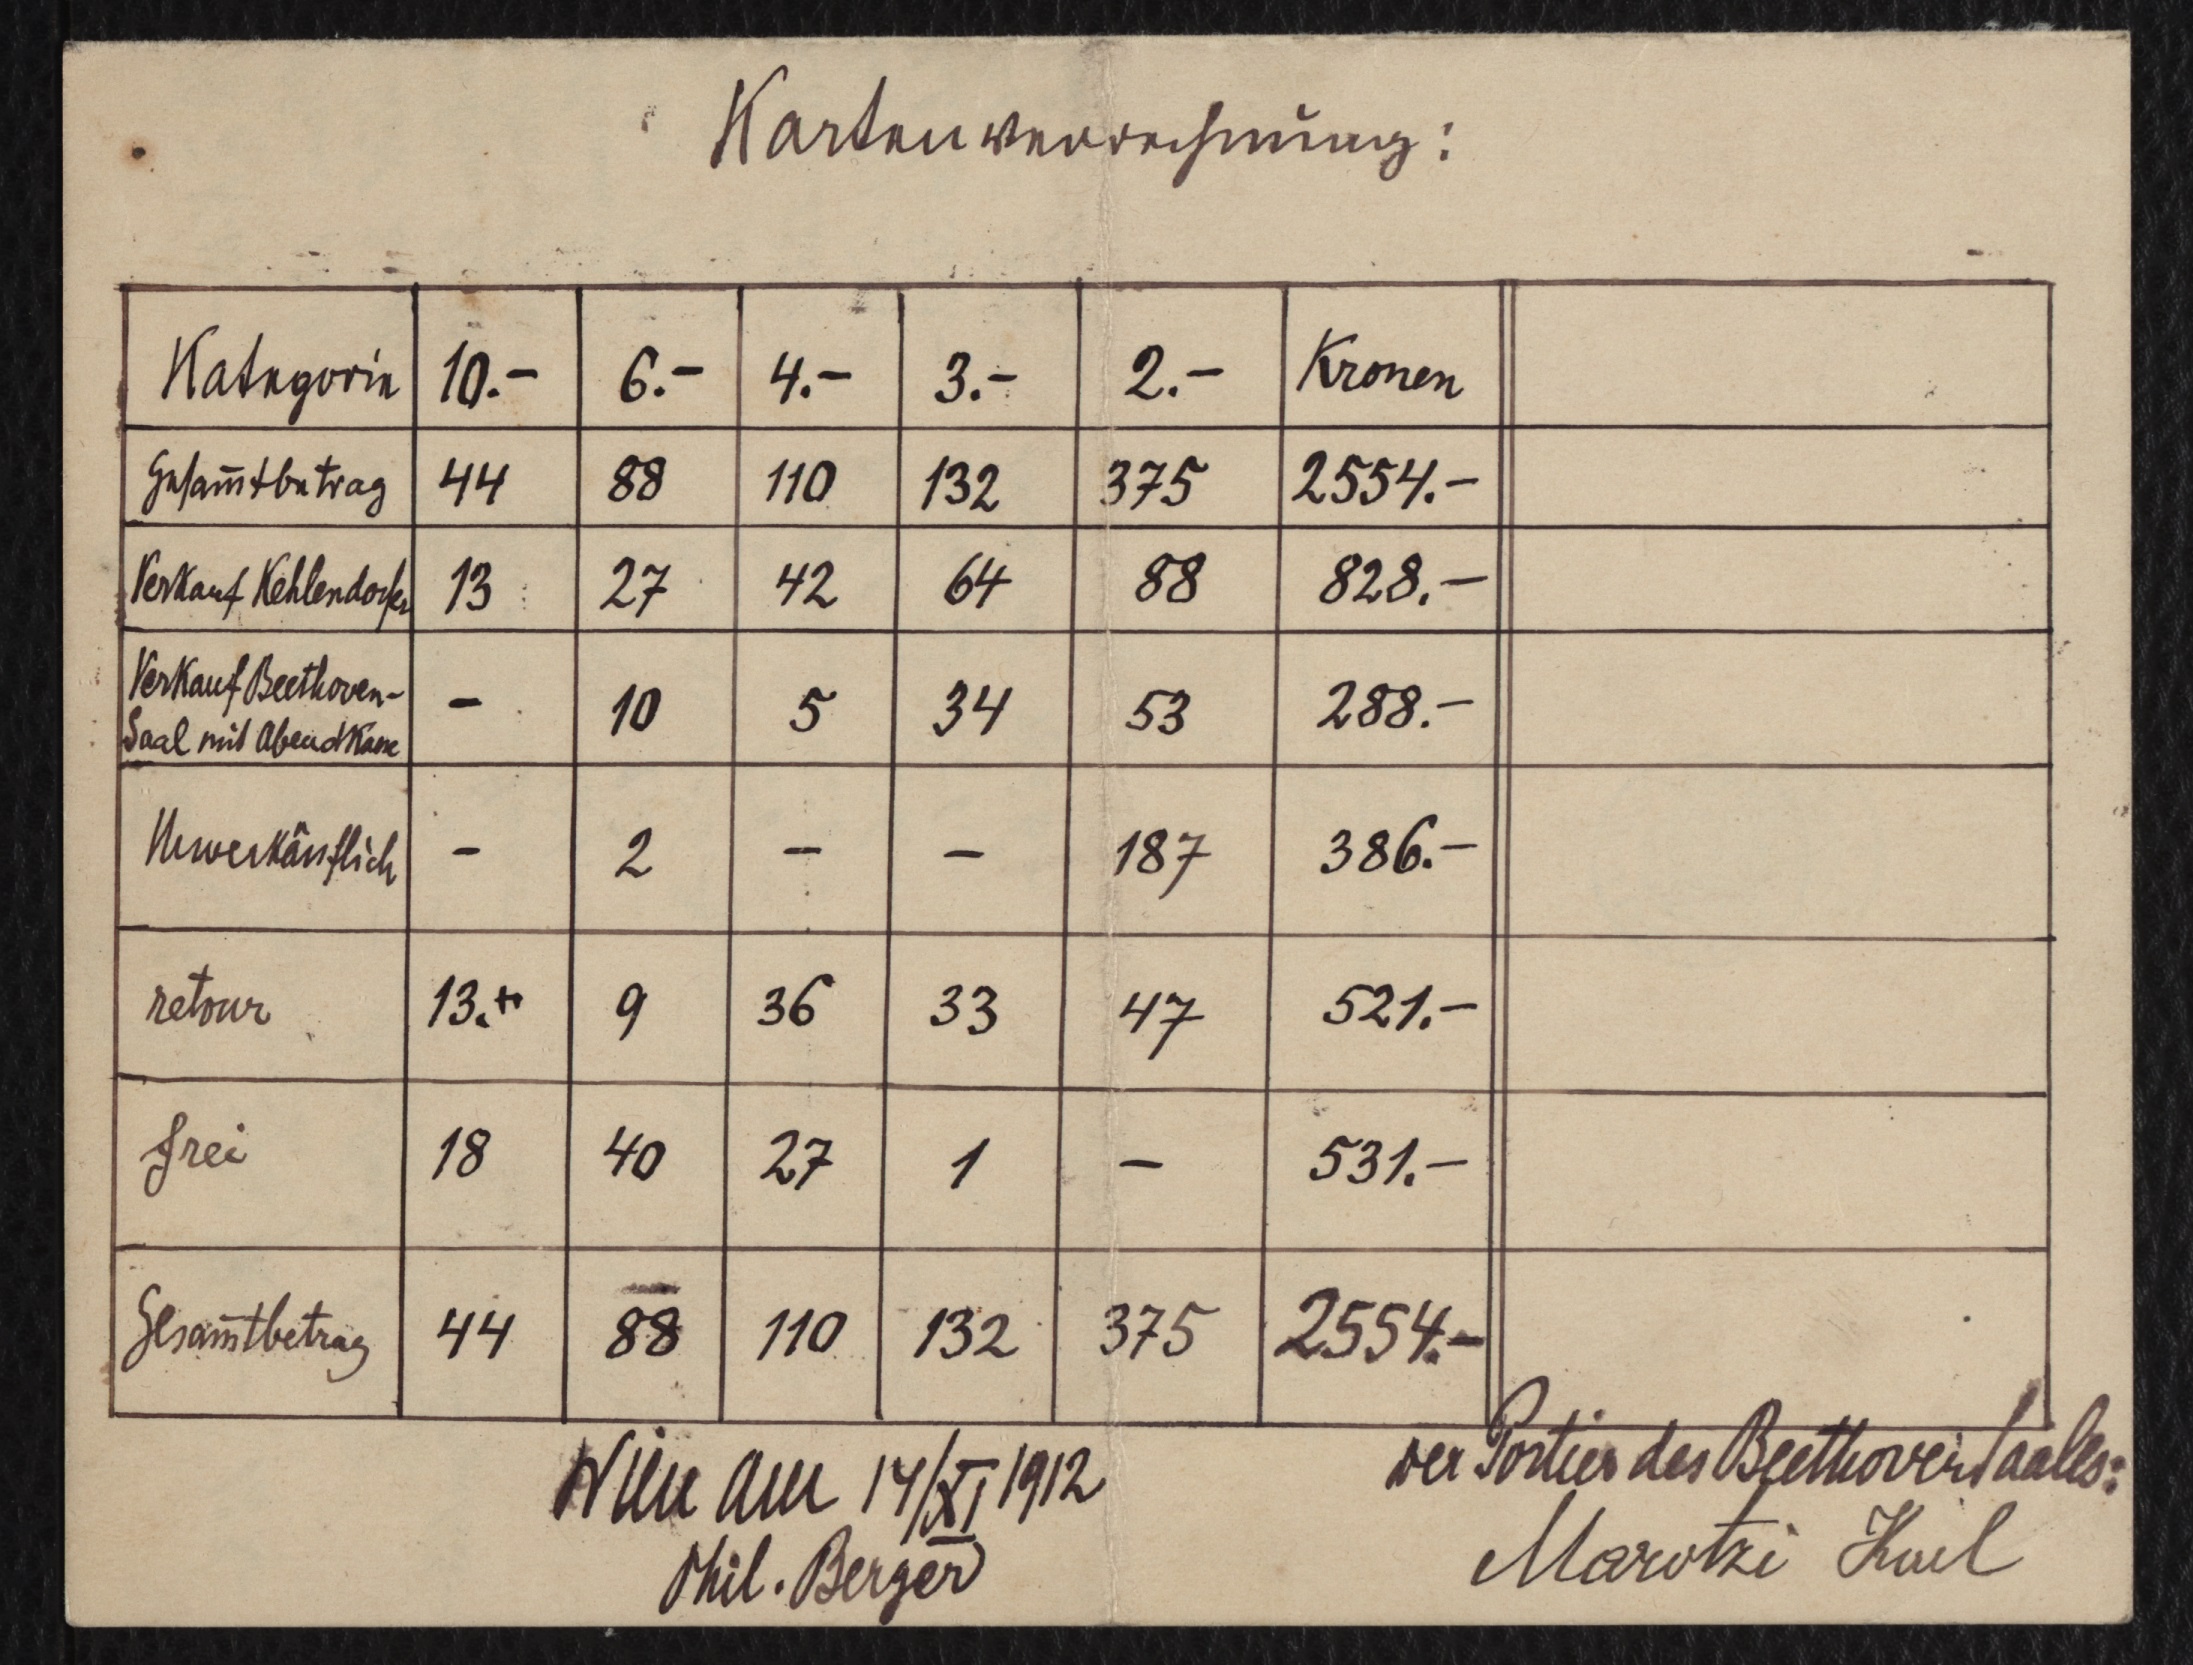 Kartenverrechnung:
Kategorie 10.- 6.- 4.- 3.- 2.- Kronen
Gesam̅tbetrag 44 88 110 132 375 2554.-
Verkauf Kehlendorfer 13 27 42 64 88 828.-
Verkauf Beethoven-
Saal mit Abendkasse - 10 5 34 53 288.-
Unverkäuflich - 2 - - 187 386.-
retour 13. 9 36 33 47 521.-
frei 18 40 27 1 - 531.-
Gesam̅tbetrag 44 88 110 132 375 2554.-
Wien am 14/XI 1912
Phil. Berger
der Portier des Beethovensaales:
Marotzi Karl